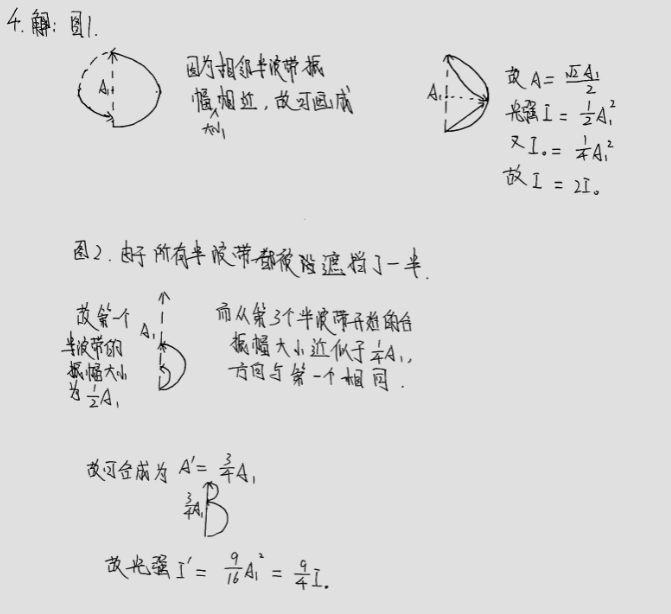 4.解：图1.
A₁
因为相邻半波带振
幅大小相近，故可画成
A₁
故 A = √2A₁/2
光强 I = 1/2 A₁²
又 I₀ = 1/4 A₁²
故 I = 2I₀
图2.由于所有半波带都被遮挡了一半.
故第一个
半波带的
振幅大小
为 1/2 A₁
A₁
而从第3个半波带开始的合
振幅大小近似于 1/4 A₁,
方向与第一个相同.
故可合成为 A' = 3/4 A₁
3/4 A₁
故光强 I' = 9/16 A₁² = 9/4 I₀